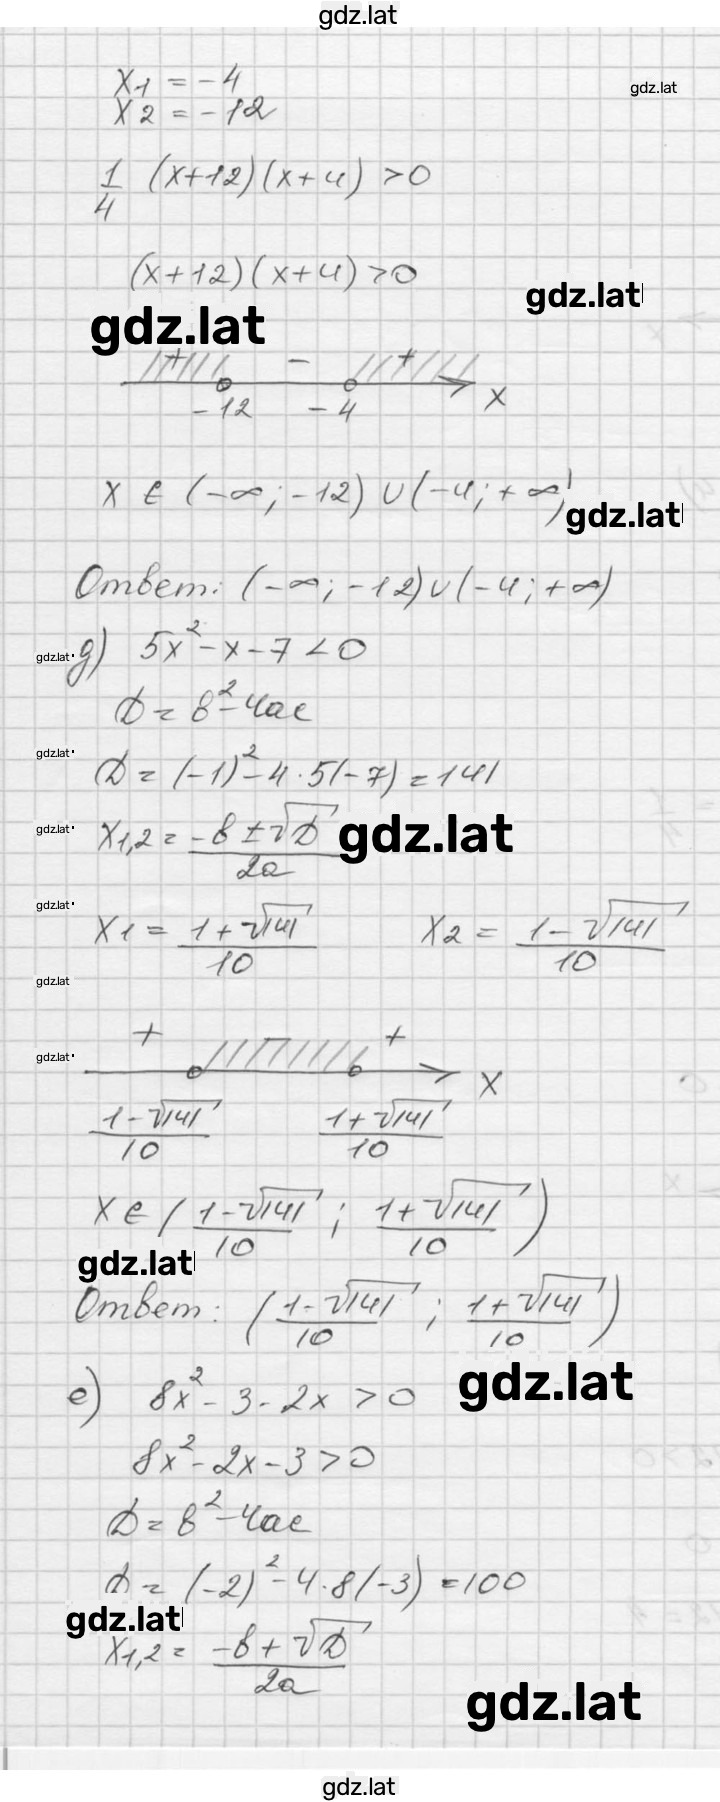 gdz.lat
x1 = -4
gdz.lat
x2 = -12
1/4 (x+12)(x+4) >0
(x+12)(x+4) >0
gdz.lat
gdz.lat
+ - +
-12 -4 x
x ∈ (-∞; -12) ∪ (-4; +∞)
gdz.lat
Ответ: (-∞; -12) ∪ (-4; +∞)
gdz.lat д) 5x² - x - 7 < 0
D = в² - 4ac
gdz.lat
D = (-1)² - 4 · 5(-7) = 141
gdz.lat x1,2 = (-в ± √D)/2a gdz.lat
gdz.lat
x1 = (1+√141)/10 x2 = (1-√141)/10
gdz.lat
+ - +
gdz.lat
x
(1-√141)/10 (1+√141)/10
x ∈ ((1-√141)/10 ; (1+√141)/10)
gdz.lat
Ответ: ((1-√141)/10 ; (1+√141)/10)
gdz.lat
е) 8x² - 3 - 2x > 0
8x² - 2x - 3 > 0
D = в² - 4ac
D = (-2)² - 4 · 8(-3) = 100
gdz.lat
x1,2 = (-в + √D)/2a
gdz.lat
gdz.lat